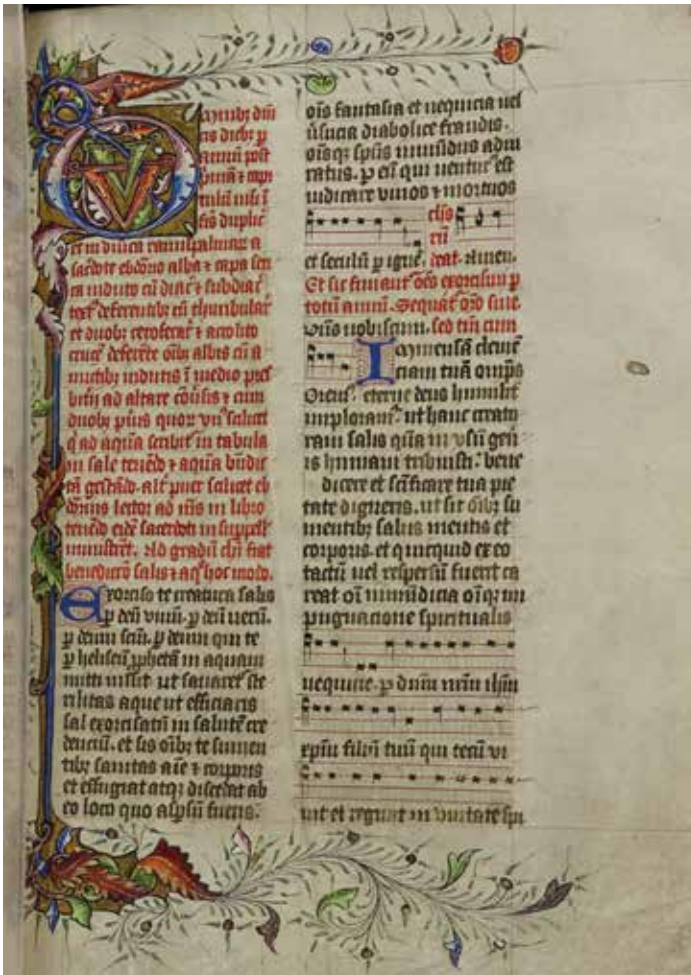 Omnibꝫ dñi
cis diebꝫ p
annum post
primā ⁊ capi
tulūm nisi ī
fis duplic
et in dñica ramispalmar̄ a
sacdote ebdōio alba ⁊ capa seri
ca induto cū diac̄ ⁊ subdiac̄
text̄ deferentibꝫ cū thuribular̄
et duobꝫ ceroferar̄ ⁊ acolito
crucē deferēte oībꝫ albis cū a
mictibꝫ indutis ī medio pres
bitīi ad altare cōūsis ⁊ cum
duobꝫ pūis quoꝝ vnꝰ salicet
q̇ ad aquā scribit̄ in tabula
in sale tenēdo ⁊ aquā bñdic
tā gestādo. alt̄ puer salicet eb
dōius lector ad īis in libro
tenēdo eidē sacerdoti in suppell
ministret. Ad gradū chī fiat
benedictio salis ⁊ aq̄ hoc modo.
Exorciso te creatura salis
p deū viuūm. p deū uerū.
p deum scm̄. p deum qui te
p heliseū ꝓphetā in aquam
mitti iussit ut sanaret̄ ste
rilitas aque ut efficiaris
sal exorcisatū in salutē cre
denciū. et sis oībꝫ te sumen
tibꝫ sanitas aīe ⁊ corporis
et effugiat atqꝫ discedat ab
eo loco quo aspsū fueris.
oīs fantasia et nequicia uel
ūsucia diabolice fraudis.
oīsqꝫ spūs inmūdus adiu
ratus. p eū qui uentur̄ est
iudicare viuos ⁊ mortuos
et seculū p igne. deat. Amen.
Et sic finiant̄ oēs exorcismi p
totū annū. Sequāt̄ or̄o sine.
Dn̄s uobiscum. sed tm̄ cum
Inmensā clemē
ciam tuā omp̄s
Orem̄. eterne deus humilit̄
imploramꝰ. ut hanc creatu
ram salis quā in vsū gen
is humani tribuisti. bene
dicere et scīficare tua pie
tate digneris. ut sit oībꝫ su
mentibꝫ salus mentis et
corporis. et quicquid ex eo
tactū uel respersū fuerit ca
reat oī inmūdicia oīqꝫ im
pugnacione spiritualis
nequicie. p dn̄m nr̄m ihm̄
xpm̄ filiū tuū qui tecū vi
uit et regnat in vnitate spū